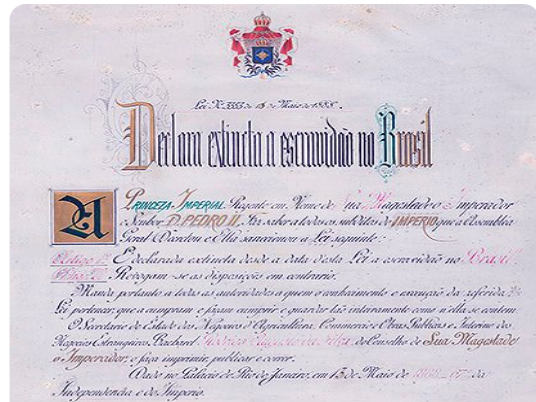 Lei Nº 3353 de 13 de Maio de 1888.
Declara extincta a escravidão no Brasil
A PRINCEZA IMPERIAL Regente em Nome de Sua Magestade o Imperador
o Senhor D. PEDRO II, Faz saber a todos os subditos do IMPERIO que a Assembléa
Geral Decretou e Ella sanccionou a Lei seguinte:
Artigo 1º É declarada extincta desde a data d'esta Lei a escravidão no Brasil
Artigo 2º Revogam-se as disposições em contrario.
Manda portanto a todas as autoridades a quem o conhecimento e execução da referida
Lei pertencer, que a cumpram e façam cumprir e guardar tão inteiramente como n'ella se contem
O Secretario de Estado dos Negocios d'Agricultura, Commercio e Obras Publicas e Interino dos
Negocios Estrangeiros, Bacharel do Conselho de Sua Magestade
o Imperador, o faça imprimir, publicar e correr.
Dado no Palacio do Rio de Janeiro, em 13 de Maio de da
Independencia e do Imperio.